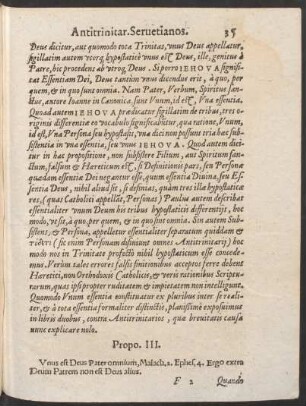 Antitrinitar. Seruetianos. 35
Deus dicitur, aut quomodo tota Trinitas, vnus Deus appellatur,
sigillatim autem vterq; hypostaticè vnus est Deus, ille, genitus à
Patre, hic procedens ab vtroq; Deus. Si porrò IEHOVA signifi-
cat Essentiam Dei, Deus tantùm vnus dicendus erit, à quo, per
quem, & in quo sunt omnia. Nam Pater, Verbum, Spiritus san-
ctus, autore Ioanne in Canonica sunt Vnum, id est, Vna essentia.
Quod autem IEHOVA praedicatur sigillatim de tribus, tres
originis differentiae eo vocabulo significabuntur, qua ratione, Vnum,
id est, Vna Persona seu hypostasis, vna dici non possunt tria hac sub-
sistentia in vna essentia, seu vnus IEHOVA. Quod autem dici-
tur in hac propositione, non subsistere Filium, aut Spiritum san-
ctum, falsum & Haereticum est, si Definitionis pars, seu Persona
quaedam essentiae Dei negantur esse, quum essentia Diuina, seu Es-
sentia Deus, nihil aliud sit, si definias, quàm tres illae hypostaticae
res, (quas Catholici appellant, Personas) Paulus autem describat
essentialiter vnum Deum his tribus hypostaticis differentijs, hoc
modo, vt sc, à quo, per quem, & in quo sunt omnia. Sin autem Sub-
sistens, & Persona, appelletur essentialiter separatum quiddam &
(sic enim Personam definiunt omnes Antitrinitarij) hoc
modo nos in Trinitate prorsus nihil hypostaticum esse concede-
mus. Verùm tales errores falsis fictionibus acceptos ferre debent
Haeretici, non Orthodoxis Catholicis, & veris rationibus Scriptu-
rarum, quas ipsi propter ruditatem & impietatem non intelligunt.
Quomodo Vnum essentia constituatur ex pluribus inter se realiter,
& à tota essentia formaliter distinctis, planissimè exposuimus
in libris duobus, contra Antitrinitarios, quae breuitatis causa
nunc explicare nolo.
Propo. III.
Vnus est Deus Pater omnium, Malach. 2. Ephes. 4. Ergo extra
Deum Patrem non est Deus alius.
F 2 Quando